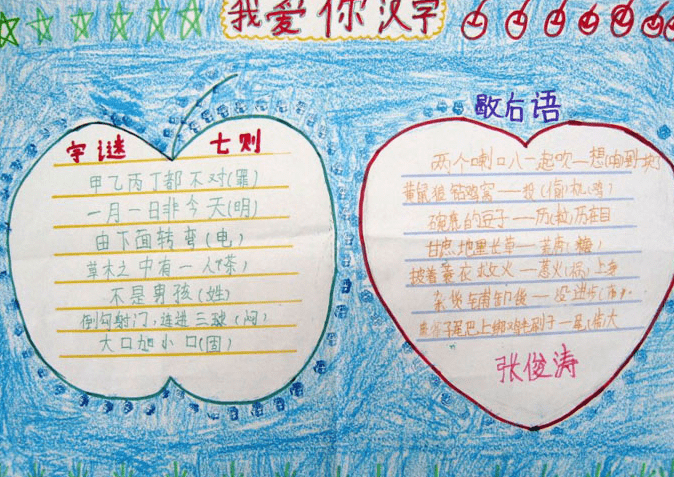 我爱你汉字
字谜 七则
甲乙丙丁都不对(罪)
一月一日非今天(明)
由下面转弯(电)
草木之中有一人(茶)
不是男孩(姓)
倒勾射门,连进三球(闷)
大口加小口(回)
歇后语
两个喇叭一起吹—想(响到一块
黄鼠狼钻鸡窝——投(偷)机(鸡)
碗底的豆子——历(粒)历在目
甘蔗地里长草——荒唐(糖)
披着蓑衣救火——惹火(祸)上身
杂货铺卸货——没进步(布
尾巴上绑鸡毛刷子一
张俊涛